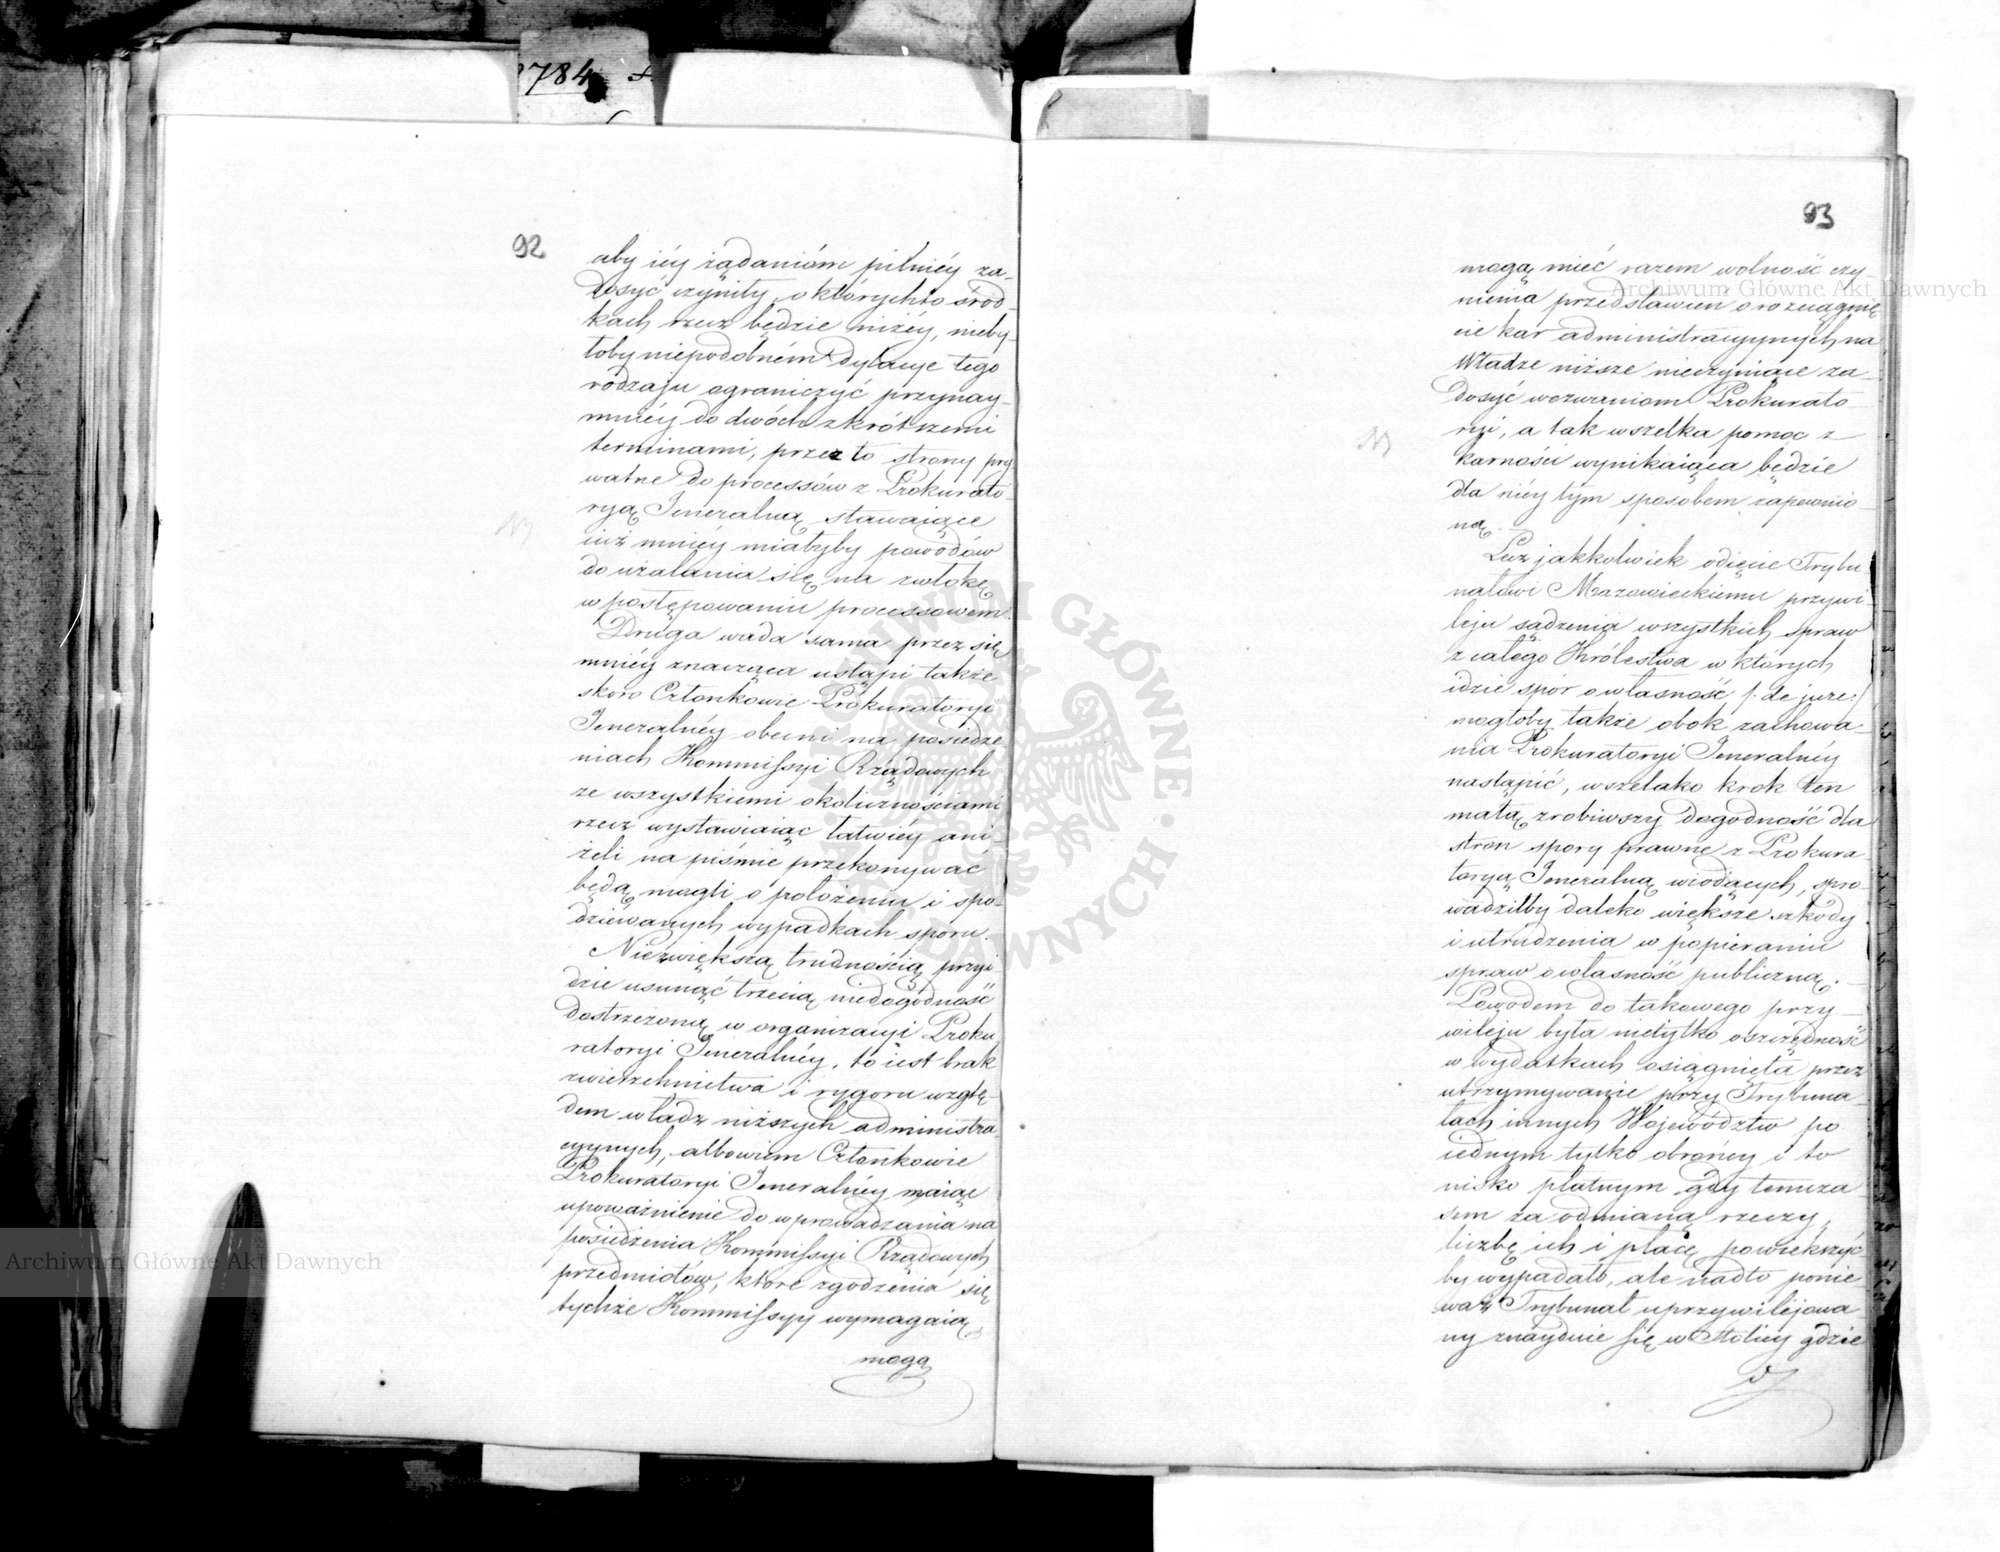 784
92
aby iéy żądanióm pilniéy za-
dosyć czyniły, o którychto środ-
kach rzecz będzie niżéy, nieby-
łoby niepodobném dylacye tego
rodzaju ograniczyć przynay-
mniéy do dwóch z krótszemi
terminami, przez to strony pry
watne do processów z Prokurato-
ryą Jeneralną stawaiące
iuż mniéy miałyby powodów
do użalania się na zwłokę
w postępowaniu processowem.
Druga wada sama przez się
mniéy znacząca ustąpi także
skoro Członkowie Prokuratoryi
Jeneralnéy obecni na posiedze
niach Kommissyi Rządowych
ze wszystkiemi okolicznościami
rzecz wystawiaiąc łatwiéy ani-
żeli na piśmie przekonywać
będą mogli o położeniu i spo-
dziewanych wypadkach sporu.
Niezwiększą trudnością przyi
dzie usunąć trzecią niedogodność
dostrzeżoną w organizacyi Proku
ratoryi Jeneralnéy, to iest brak
zwierzchnictwa i rygoru wzglę-
dem władz niższych administra-
cyynych, albowiem Członkowie
Prokuratoryi Jeneralnéy maiąc
upoważnienie do wprowadzania na
posiedzenia Kommissyi Rządowych
przedmiotów, które zgodzenia się
tychże Kommissyy wymagaią,
mogą
93
mogą mieć razem wolność czy-
nienia przedstawień o rozciągnię
cie kar administracyynych na
Władze niższe nieczyniące za-
dosyć wezwaniom Prokurato-
ryi, a tak wszelka pomoc z
karności wynikaiąca będzie
dla niéy tym sposobem zapewnio-
ną.
Lecz jakkolwiek odięcie Trybu
nałowi Mazowieckiemu przywi-
leju sądzenia wszystkich spraw
z całego Królestwa w których
idzie spór o własność /: de jure :/
mogłoby także obok zachowa-
nia Prokuratoryi Jeneralnéy
nastąpić, wszelako krok ten
małą zrobiwszy dogodność dla
stron spory prawne z Prokura-
toryą Jeneralną wiodących, spro-
wadziłby daleko większe szkody
i utrudzenia w popieraniu
spraw o własność publiczną.
Powodem do takowego przy-
wileju była nietylko oszczędność
w wydatkach osiągnięta przez
utrzymywanie przy Trybuna-
łach innych Województw po
iednym tylko obrońcy i to
nisko płatnym, gdy temcza-
sem za odmianą rzeczy,
liczbę ich i płacę powiekszyć
by wypadało, ale nadto ponie
waż Trybunał uprzywilejowa
ny znayduie się w Stolicy gdzie
Archiwum Główne Akt Dawnych
Archiwum Główne Akt Dawnych
ARCHIWUM GŁÓWNE AKT DAWNYCH